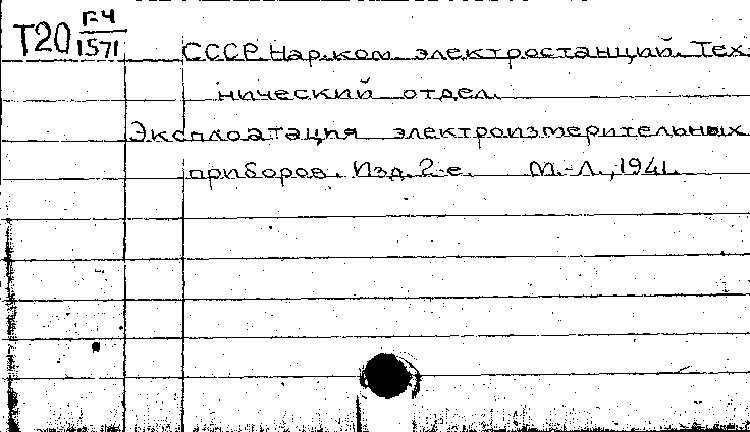 Т20 Г-4/1571
СССР. Нар.ком. электростанций. Тех
нический отдел.
Эксплоатация электроизмерительных
приборов. Изд. 2-е. М.-Л., 1941.